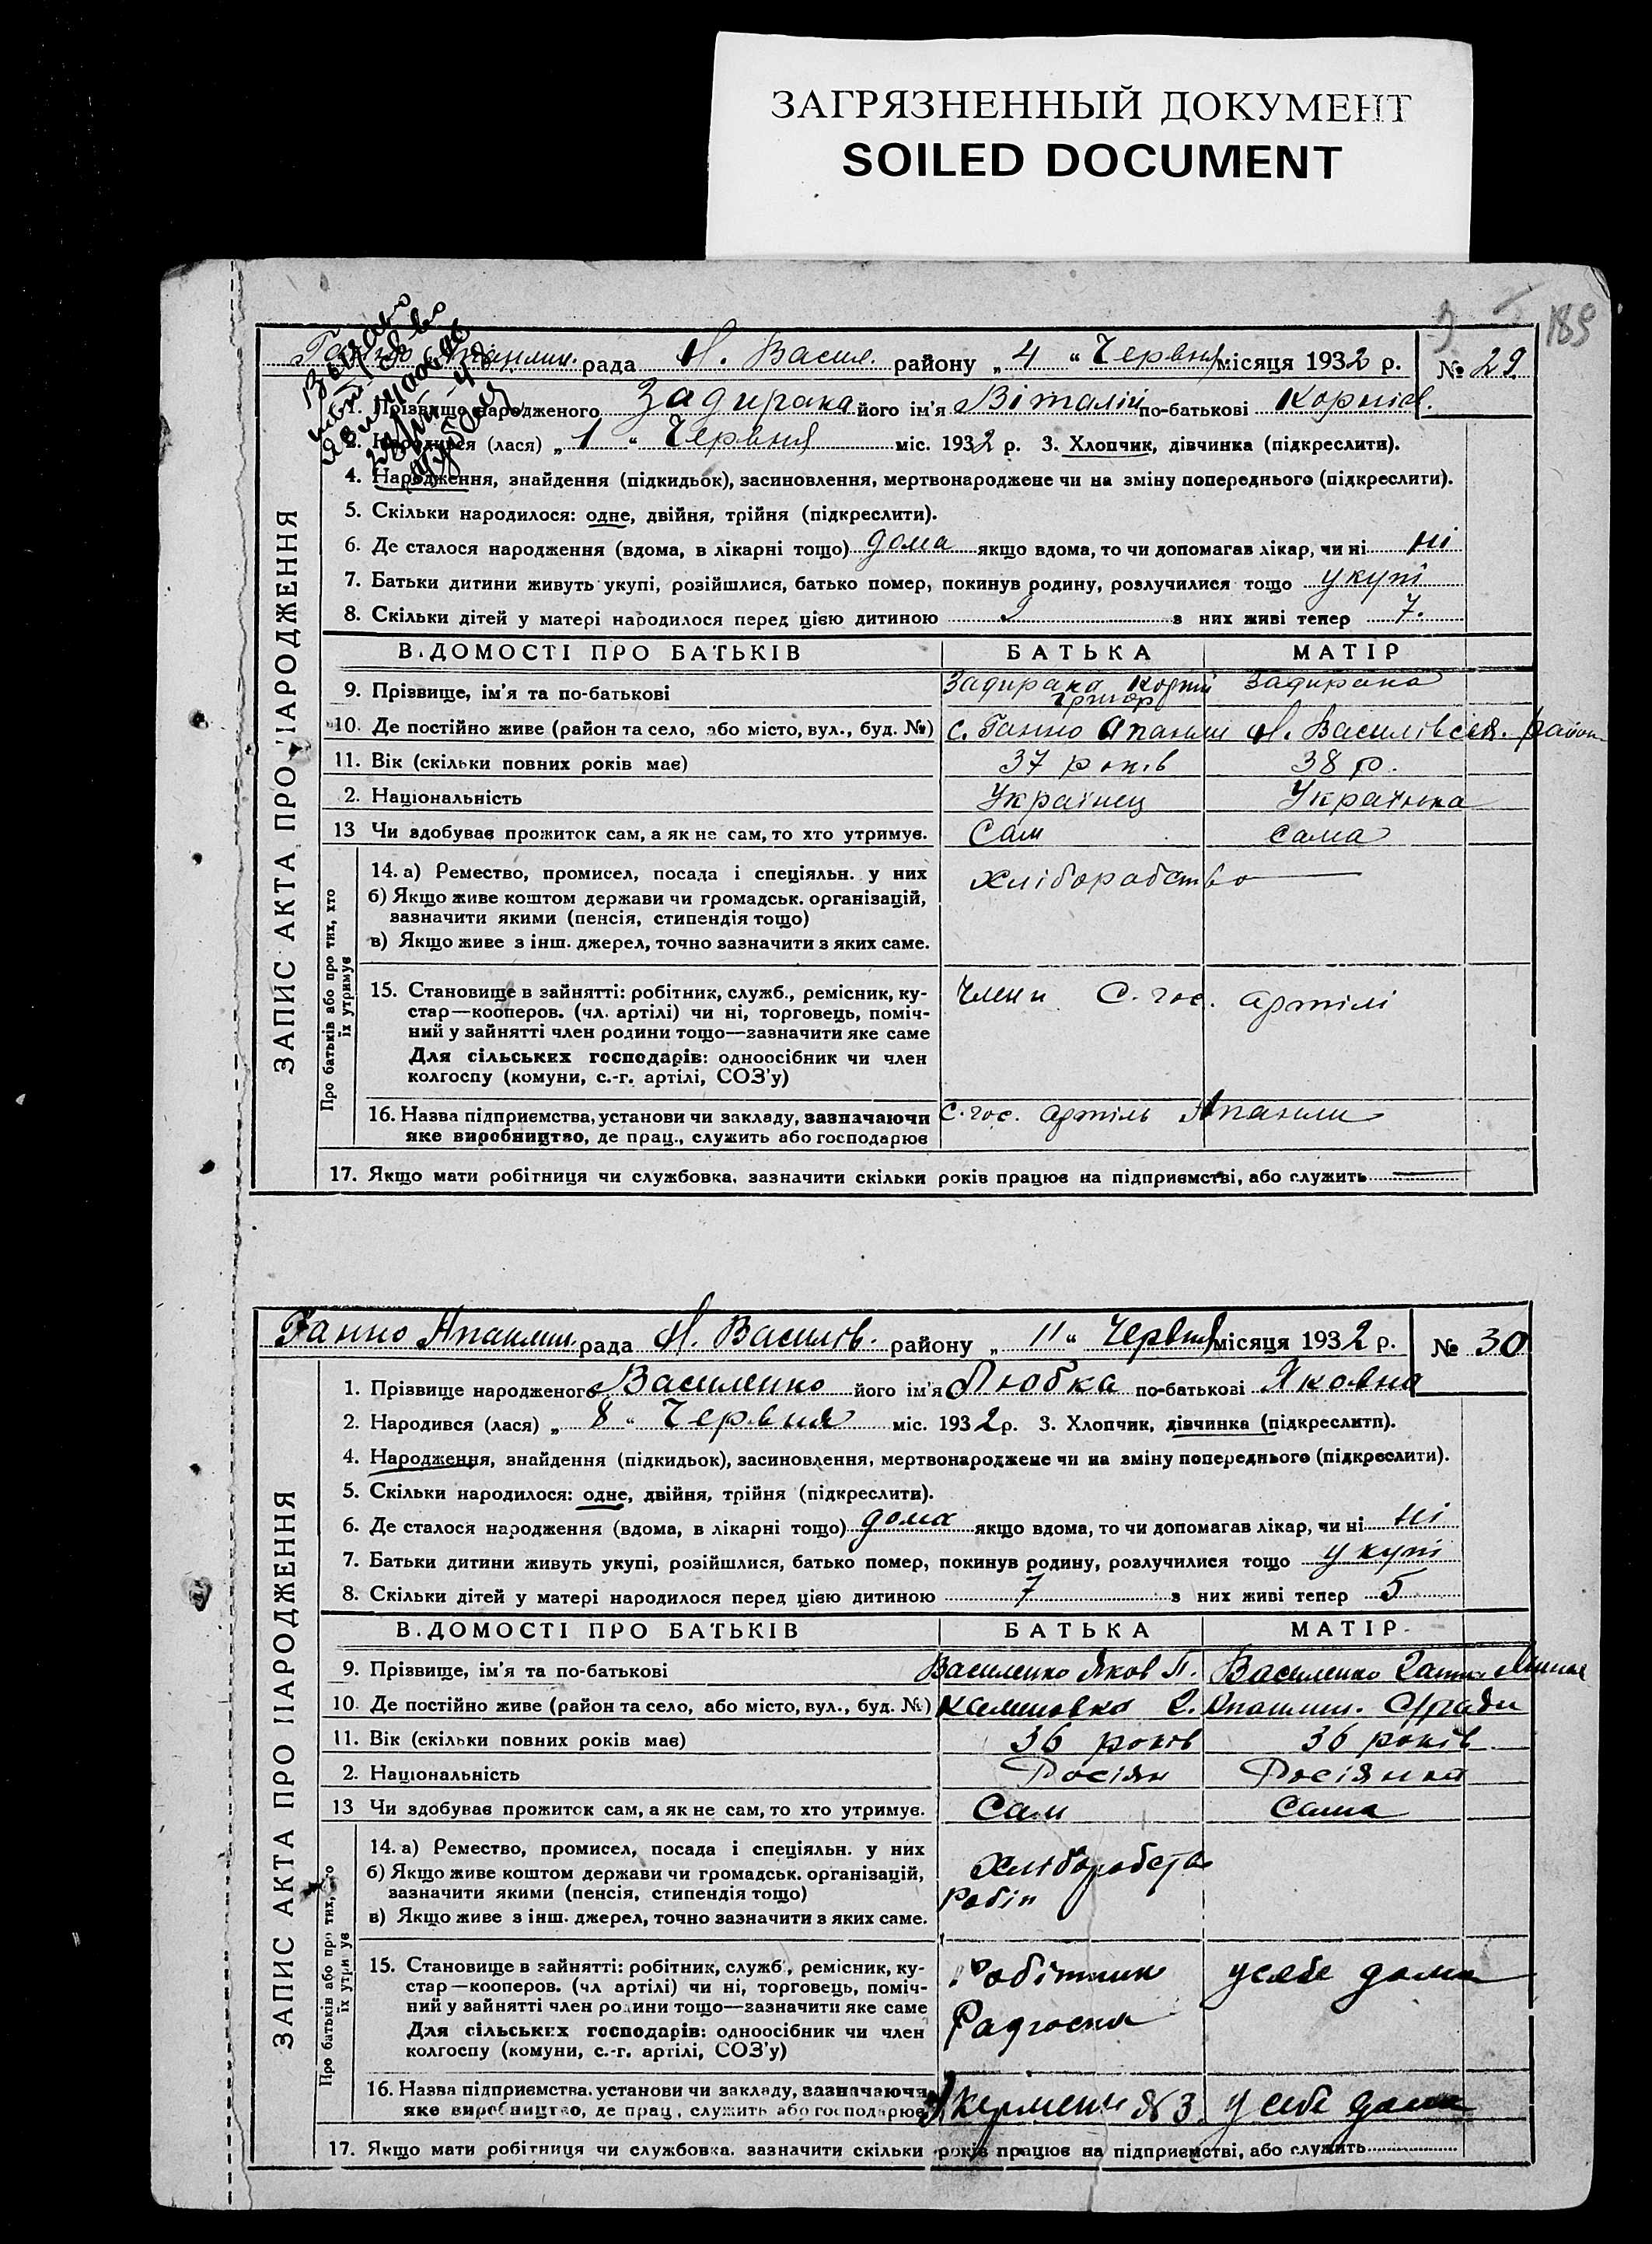 ЗАГРЯЗНЕННЫЙ ДОКУМЕНТ
SOILED DOCUMENT
189
рада Н. Васил. району „ 4 " Червня місяця 1932 р. № 29
1. Прізвище народженого Задирака його ім'я Віталій по-батькові Корнієв.
2. Народився (лася) „ 1 " Червня міс. 1932 р. 3. Хлопчик, дівчинка (підкреслити).
4. Народження, знайдення (підкидьок), засиновлення, мертвонароджене чи на зміну попереднього (підкреслити).
5. Скільки народилося: одне, двійня, трійня (підкреслити).
6. Де сталося народження (вдома, в лікарні тощо) дома якщо вдома, то чи допомагав лікар, чи ні ні
7. Батьки дитини живуть укупі, розійшлися, батько помер, покинув родину, розлучилися тощо укупі
8. Скільки дітей у матері народилося перед цією дитиною 9 з них живі тепер 7.
ЗАПИС АКТА ПРО НАРОДЖЕННЯ
В.ДОМОСТІ ПРО БАТЬКІВ БАТЬКА МАТІР
9. Прізвище, ім'я та по-батькові Задирака Корній Григор Задирака
10. Де постійно живе (район та село, або місто, вул., буд. №) с. Ганно Апанлин Н. Василівськ. район
11. Вік (скільки повних років має) 37 років 38 р.
2. Національність Українец Українка
13 Чи здобуває прожиток сам, а як не сам, то хто утримує. Сам сама
Про батьків або про тих, хто їх утримує
14. а) Ремество, промисел, посада і спеціяльн. у них хліборобство
б) Якщо живе коштом держави чи громадськ. організацій,
зазначити якими (пенсія, стипендія тощо)
в) Якщо живе з інш. джерел, точно зазначити з яких саме.
15. Становище в зайнятті: робітник, служб., ремісник, ку- Члени С. гос. артілі
стар—кооперов. (чл. артілі) чи ні, торговець, поміч-
ний у зайнятті член родини тощо—зазначити яке саме
Для сільських господарів: одноосібник чи член
колгоспу (комуни, с.-г. артілі, СОЗ'у)
16. Назва підприємства, установи чи закладу, зазначаючи С. гос. артіль Апанлин
яке виробництво, де прац., служить або господарює
17. Якщо мати робітниця чи службовка, зазначити скільки років працює на підприємстві, або служить
Ганно Апанлин рада Н. Василів. району „ 11 " Червня місяця 1932 р. № 30
1. Прізвище народженого Василенко його ім'я Любка по-батькові Яковна
2. Народився (лася) „ 8 " Червня міс. 1932 р. 3. Хлопчик, дівчинка (підкреслити).
4. Народження, знайдення (підкидьок), засиновлення, мертвонароджене чи на зміну попереднього (підкреслити).
5. Скільки народилося: одне, двійня, трійня (підкреслити).
6. Де сталося народження (вдома, в лікарні тощо) дома якщо вдома, то чи допомагав лікар, чи ні ні
7. Батьки дитини живуть укупі, розійшлися, батько помер, покинув родину, розлучилися тощо укупі
8. Скільки дітей у матері народилося перед цією дитиною 7 з них живі тепер 5
ЗАПИС АКТА ПРО НАРОДЖЕННЯ
В.ДОМОСТІ ПРО БАТЬКІВ БАТЬКА МАТІР
9. Прізвище, ім'я та по-батькові Василенко Яков П. Василенко Ганна
10. Де постійно живе (район та село, або місто, вул., буд. №) Калиновка
11. Вік (скільки повних років має) 36 років 36 років
2. Національність Росіян Росіянка
13 Чи здобуває прожиток сам, а як не сам, то хто утримує. Сам сама
Про батьків або про тих, хто їх утримує
14. а) Ремество, промисел, посада і спеціяльн. у них хліборобств
б) Якщо живе коштом держави чи громадськ. організацій, робін
зазначити якими (пенсія, стипендія тощо)
в) Якщо живе з інш. джерел, точно зазначити з яких саме.
15. Становище в зайнятті: робітник, служб., ремісник, ку- Робітник у себе дома
стар—кооперов. (чл артілі) чи ні, торговець, поміч-
ний у зайнятті член родини тощо—зазначити яке саме Радгоспи
Для сільських господарів: одноосібник чи член
колгоспу (комуни, с.-г. артілі, СОЗ'у)
16. Назва підприємства, установи чи закладу, зазначаючи Акермень №3 у себе дома
яке виробництво, де прац., служить або господарює
17. Якщо мати робітниця чи службовка, зазначити скільки років працює на підприємстві, або служить